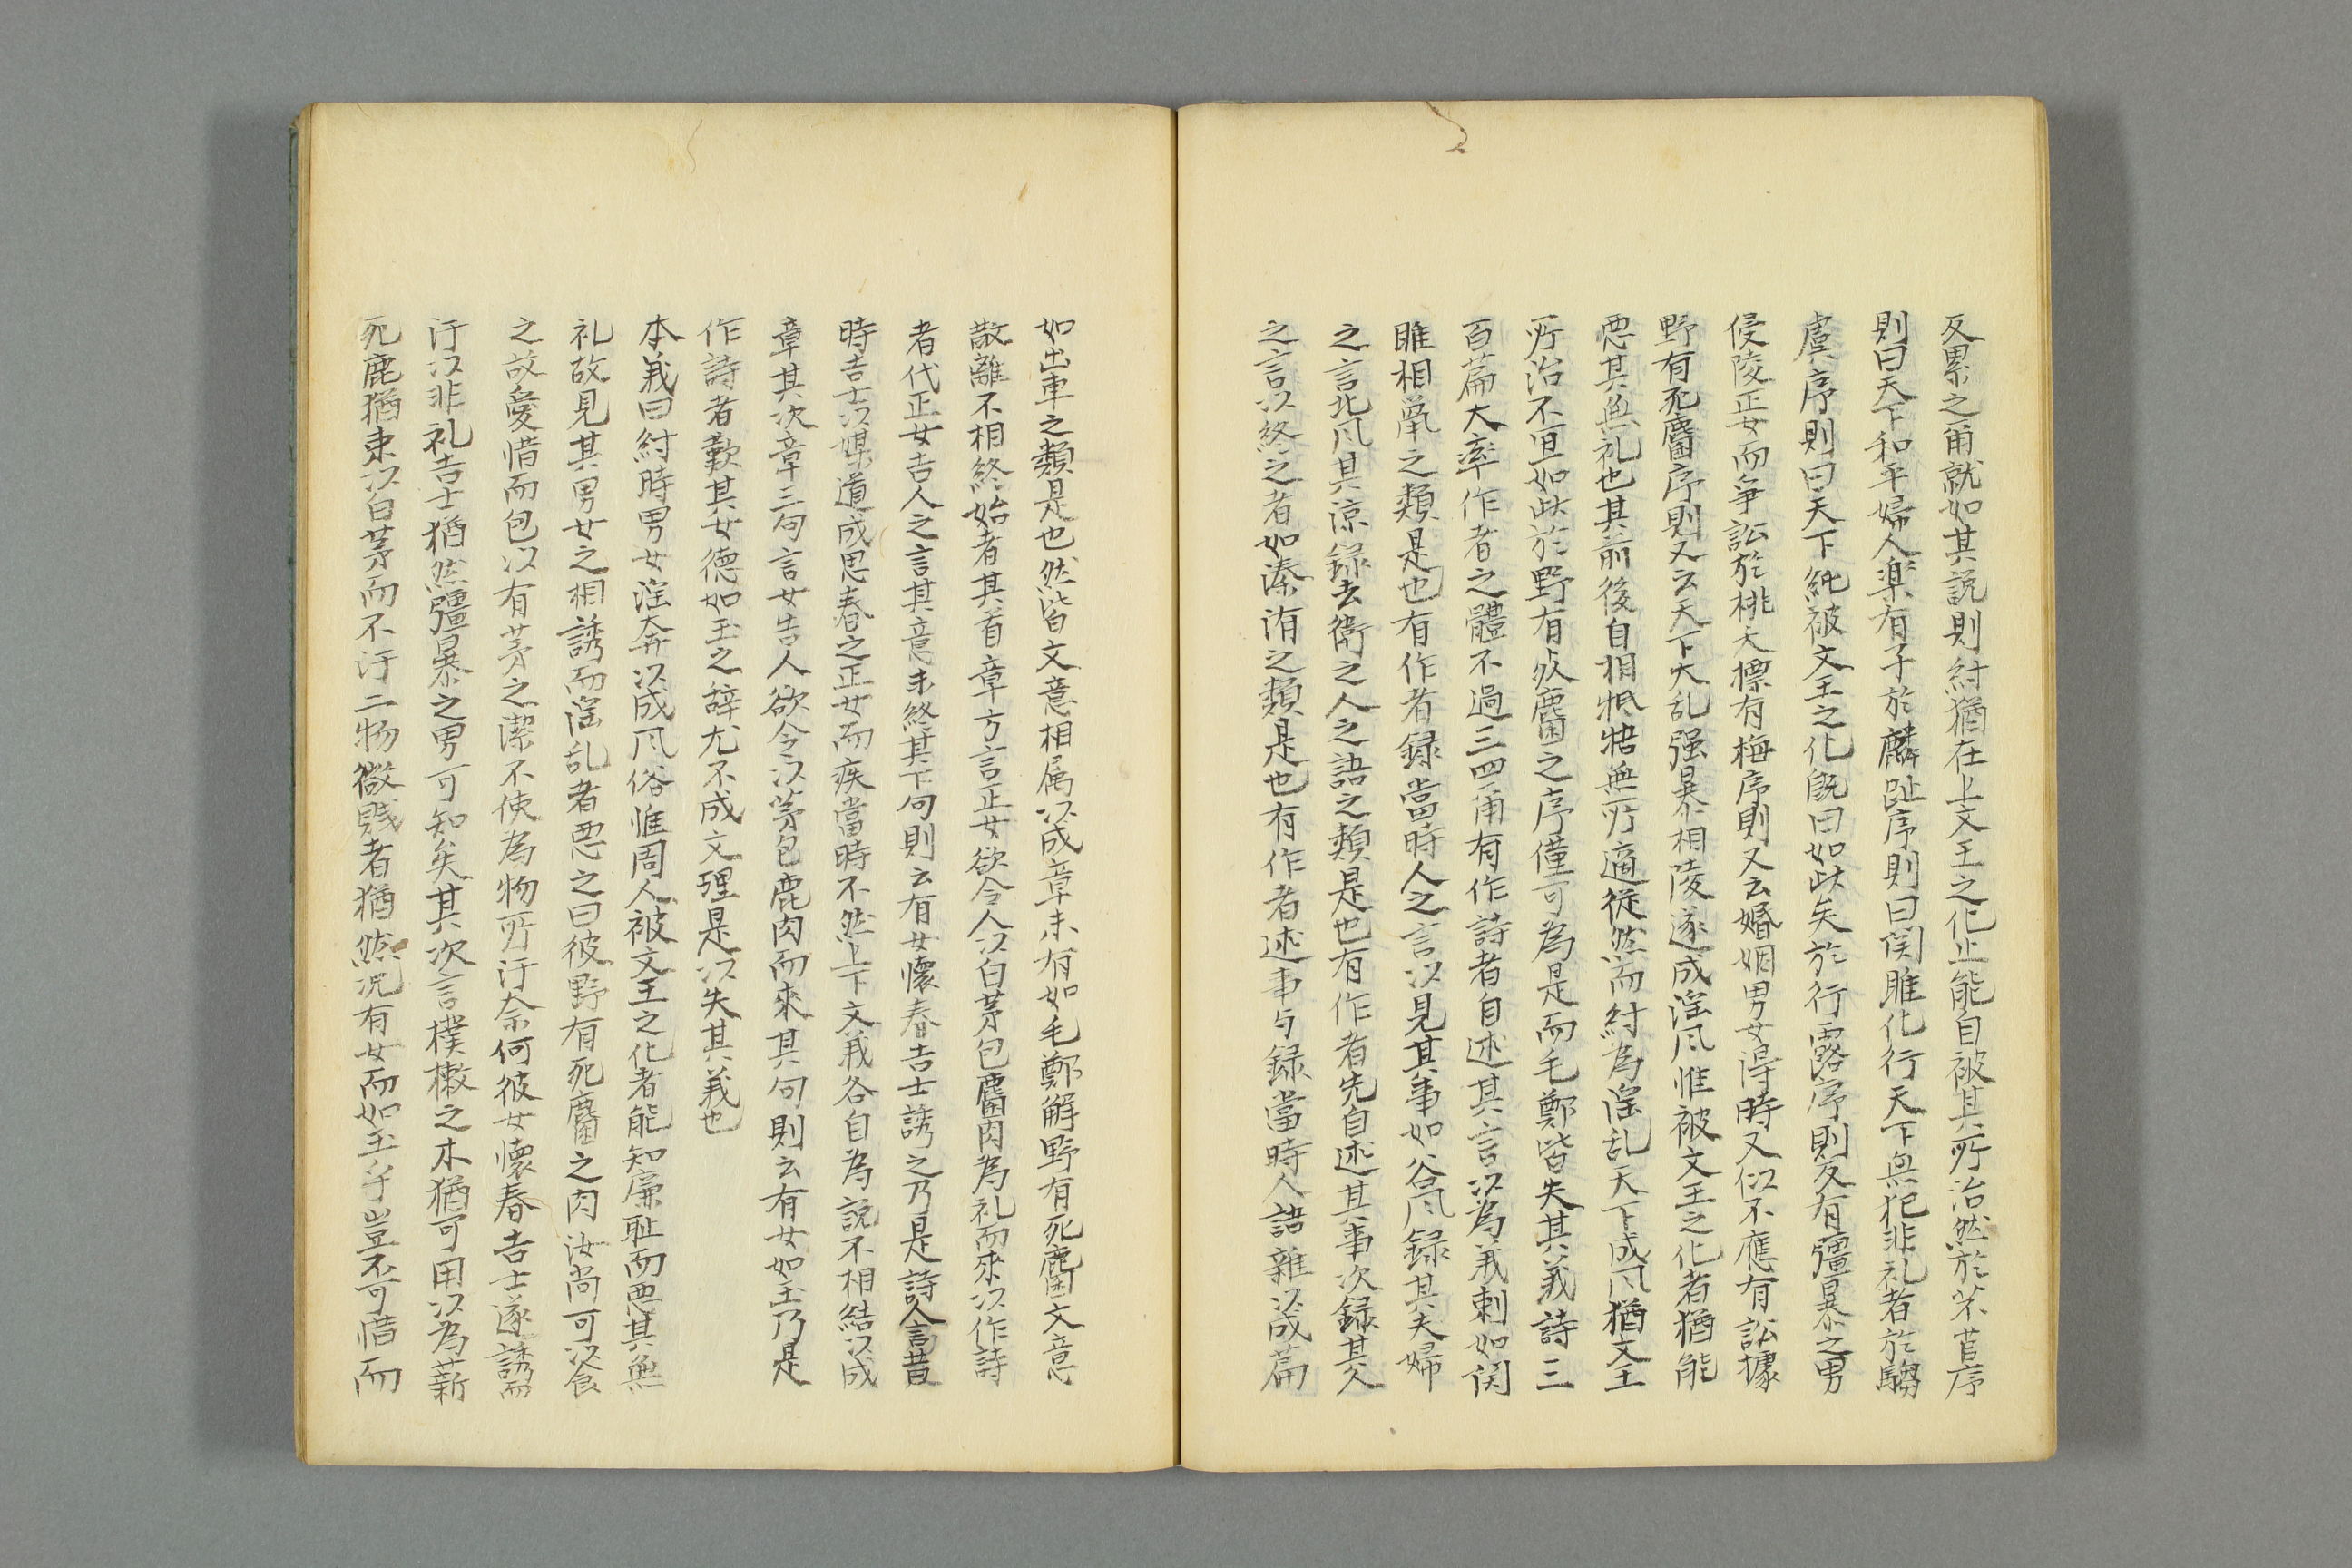 反累之甬就如其説則紂猶在上文王之化止能自被其所治然於芣苢序
則曰天下和平婦人楽有子於麟趾序則曰関雎化行天下無犯非礼者於騶
虞序則曰天下純被文王之化既曰如此矣於行露序則反有彊暴之男
侵陵正女而争訟於桃夭摽有梅序則又云婚姻男女得時又似不應有訟據
野有死麕序則又云天下大乱强暴相陵遂成淫风惟被文王之化者猶能
悪其無礼也其前後自相牴牾無所適従然而紂為淫乱天下成风猶文王
所治不宜如此於野有死麕之序僅可為是而毛鄭皆失其義詩三
百篇大率作者之體不過三四甬有作詩者自述其言以為義刺如関
雎相鼠之類是也有作者録當時人之言以見其事如谷风録其夫婦
之言北风其涼録去衛之人之語之類是也有作者先自述其事次録其人
之言以終之者如溱洧之類是也有作者述事与録當時人語雜以成篇
如出車之類是也然皆文意相属以成章未有如毛鄭解野有死麕文意
散離不相終始者其首章方言正女欲令人以白茅包麕肉為礼而來以作詩
者代正女吉人之言其意未終其下句則云有女懷春吉士誘之乃是詩人言昔
時吉士以媒道成思春之正女而疾當時不然上下文義各自為説不相結以成
章其次章三句言女告人欲令以茅包鹿肉而來其句則云有女如玉乃是
作詩者歎其女德如玉之辞尤不成文理是以失其義也
本義曰紂時男女淫奔以成风俗惟周人被文王之化者能知廉耻而悪其無
礼故見其男女之相誘而淫乱者悪之曰彼野有死麕之肉汝尚可以食
之故愛惜而包以有茅之潔不使為物所汙奈何彼女懷春吉士遂誘而
汙以非礼吉士猶然彊暴之男可知矣其次言樸樕之木猶可用以為薪
死鹿猶束以白茅而不汙二物微賎者猶然况有女而如玉乎豈不可惜而